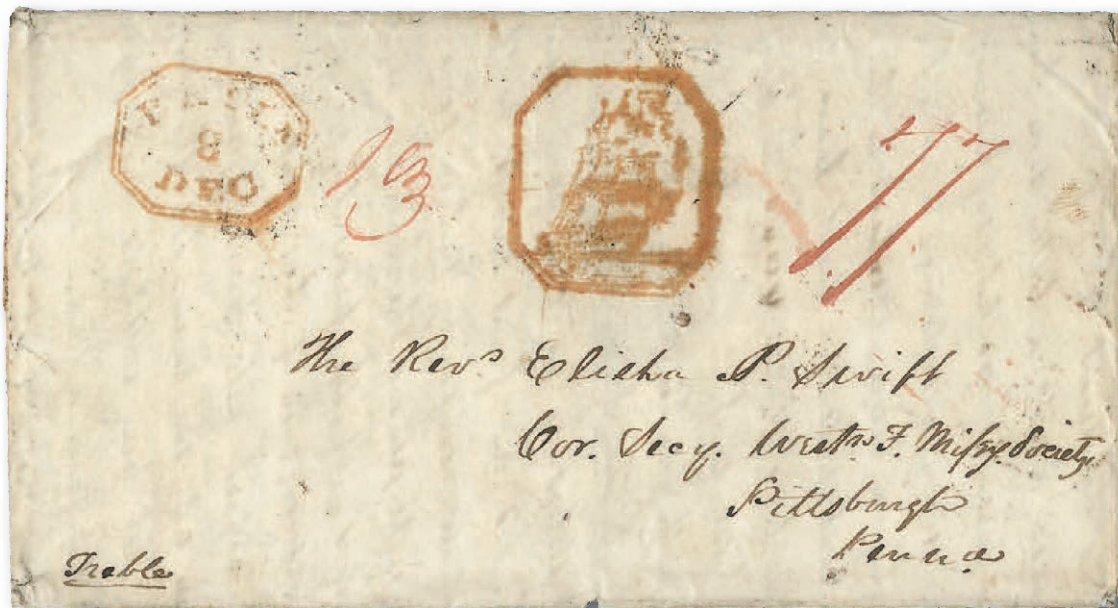 8
DEC
77
The Revd Elisha P. Swift
Cor. Secy. Westn. F. Missy. Society
Pittsburgh
Penna
Treble